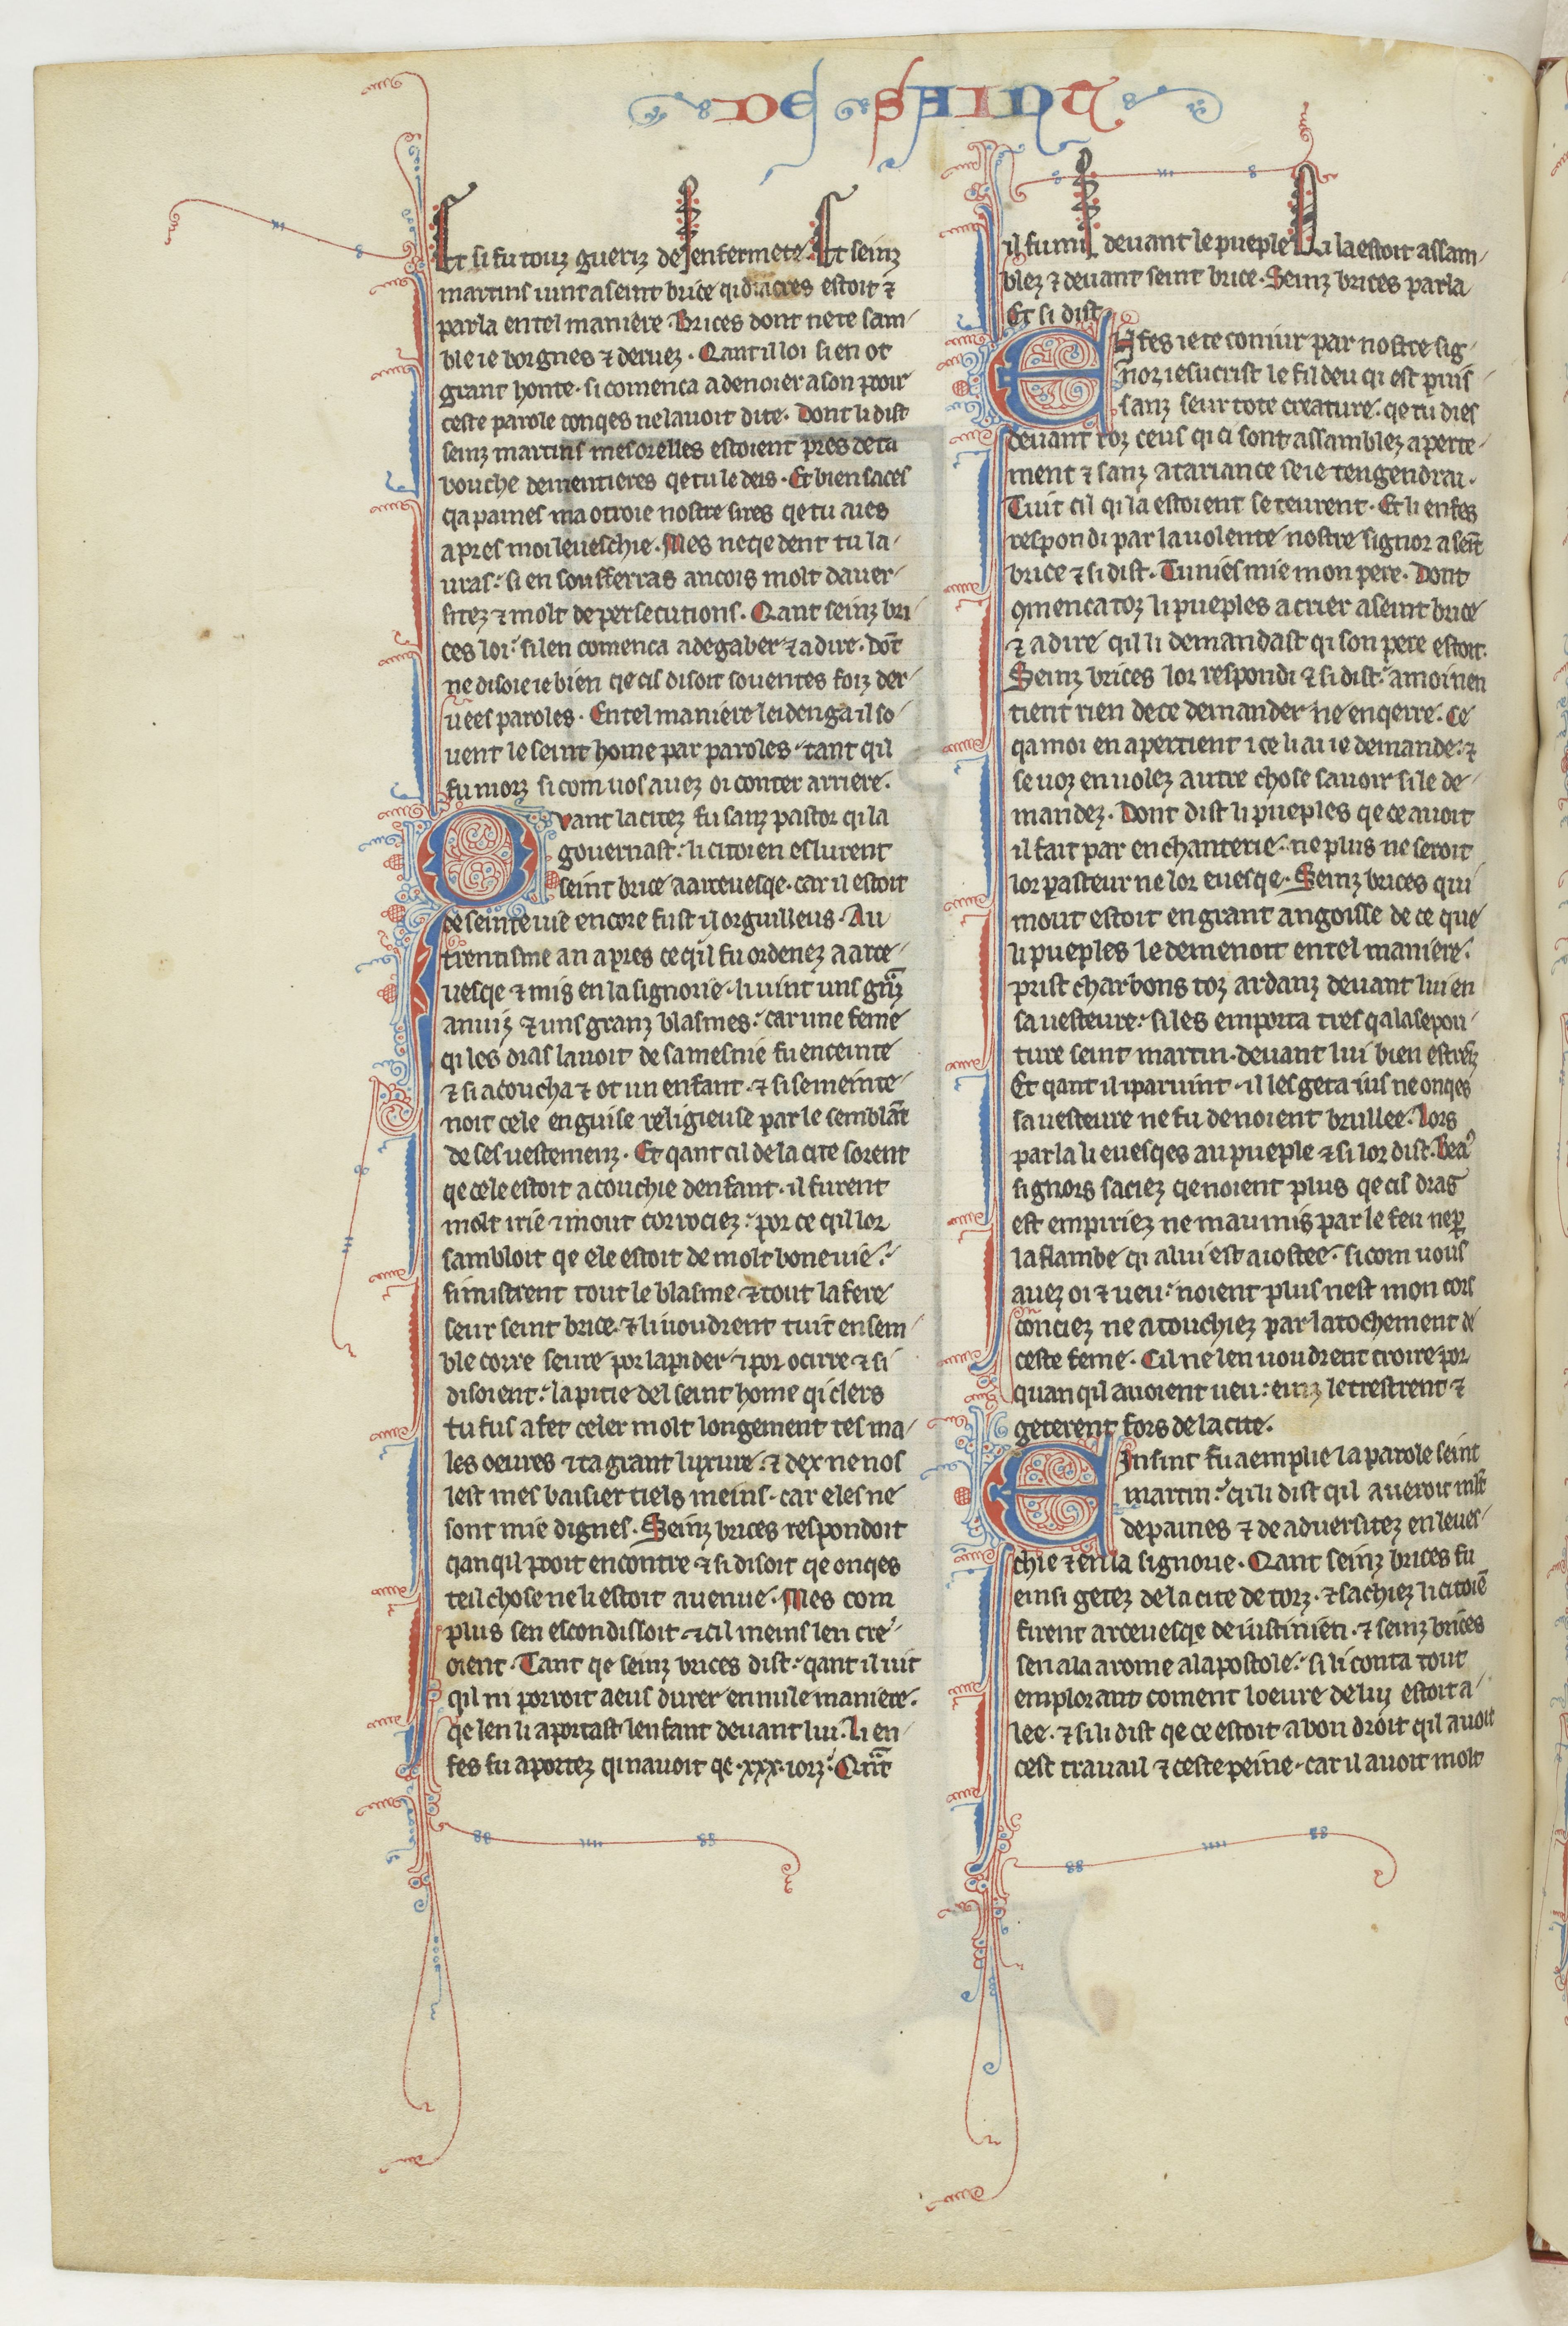 DE SAINT
Et si fu touz gueriz de lenfermete. Et seinz
martins vint a seint brice qi diacres estoit ⁊
parla en tel maniere. Brices dont ne te sam-
ble ie borgnes ⁊ deruez. Qant il loi si en ot
grant honte. si comenca a denoier a son pooir
ceste parole conqes ne lauoit dite. Dont li dist
seinz martins mes orelles estoient pres de ta
bouche dementieres qe tu le deis. Et bien saces
qa paines ma otroie nostre sires qe tu aies
apres moi leueschie. Mes neqedent tu la-
uras. si en soufferras ancois molt dauer-
sitez ⁊ molt de persecutions. Qant seinz bri-
ces loi. si len comenca a degaber ⁊ a dire. dot̄
ne disoie ie bien qe cis disoit souentes foiz der-
uees paroles. En tel maniere leidenga il so-
uent le seint home par paroles. tant qil
fu morz si com uos auez oi conter arriere.
Qvant la citez fu sanz pastor qi la
gouernast. li citoien eslurent
seint brice a arceuesqe. car il estoit
de seinte uie encore fust il orguilleus. Au
trentisme an apres ce qil fu ordenez a arce-
uesqe ⁊ mis en la signorie. li uint uns grāz
anuiz ⁊ uns granz blasmes. car une feme
qi les dras lauoit de sa mesnie fu enceinte
⁊ si acoucha ⁊ ot un enfant. ⁊ si se meinte-
noit cele en guise religieuse par le semblāt
de ses uestemenz. Et qant cil de la cite sorent
qe cele estoit acouchie denfant. il furent
molt irie ⁊ mout corrociez. por ce qil lor
sambloit qe ele estoit de molt bone uie.
si mistrent tout le blasme ⁊ tout lafere
seur seint brice. ⁊ li uoudrent tuit ensem-
ble corre seure por lapider ⁊ por ocirre ⁊ si
disoient. la pitie del seint home qi clers
tu fus a fet celer molt longement tes ma-
les oeures ⁊ ta grant luxure. ⁊ dex ne nos
lest mes baisier tiels meins. car eles ne
sont mie dignes. Seinz brices respondoit
qanqil pooit encontre ⁊ si disoit qe onqes
teil chose ne li estoit auenue. Mes com
plus sen escondissoit ⁊ cil meins len cre-
oient. Tant qe seinz brices dist. qant il uit
qil ni porroit a eus durer en nule maniere.
qe len li aportast lenfant deuant lui. Li en-
fes fu aportez qi nauoit qe .xxx. iorz. Qn̄t
il fu mis deuant le pueple qi la estoit assam-
blez ⁊ deuant seint brice. Seinz brices parla
Et si dist.
ENfes ie te coniur par nostre sig-
nor iesucrist le fil deu qi est puis-
sanz seur tote creature. qe tu dies
deuant toz ceus qi ci sont assamblez aperte-
ment ⁊ sanz atariance se ie tengendrai.
Tuit cil qi la estoient se teurent. Et li enfes
respondi par la uolente nostre signor a seīt
brice ⁊ si dist. Tu nies mie mon pere. Dont
ꝯmenca toz li pueples a crier a seint brice
⁊ a dire qil li demandast qi son pere estoit.
Seinz brices lor respondi ⁊ si dist. a moi nen
tient rien de ce demander ne enqerre. Ce
qa moi en apertient ice li ai ie demande. ⁊
se uoz en uolez autre chose sauoir si le de-
mandez. Dont dist li pueples qe ce auoit
il fait par enchanterie. ne plus ne seroit
lor pasteur ne lor euesqe. Seinz brices qui
mout estoit en grant angoisse de ce que
li pueples le demenoit en tel maniere.
prist charbons toz ardanz deuant lui en
sa uesteure. si les emporta tres qa la sepou-
ture seint martin. deuant lui bien estrez
Et qant il i paruint. il les geta ius ne onqes
sa uesteure ne fu de noient brullee. Lors
parla li euesqes au pueple ⁊ si lor dist. Bea9
signors saciez qe noient plus qe cis dras
est empiriez ne maumis par le feu ne ꝑ
la flambe qi a lui est aiostee. si com uous
auez oi ⁊ ueu. noient plus nest mon cors
conciez ne atouchiez par latochement de
ceste feme. Cil ne len uoudrent croire por
quanqil auoient ueu. einz le trestrent ⁊
geterent fors de la cite.
EInsint fu aemplie la parole seint
martin. qi li dist qil aueroit mlt̄
de paines ⁊ de aduersitez en leues-
chie ⁊ en la signorie. Qant seinz brices fu
einsi getez de la cite de torz. ⁊ sachiez li citoiē
firent arceuesqe de iustinien. ⁊ seinz brices
sen ala a rome a lapostole. si li conta tout
em plorant coment loeure de luy estoit a-
lee. ⁊ si li dist qe ce estoit a bon droit qil auoit
cest trauail ⁊ ceste peine. car il auoit molt